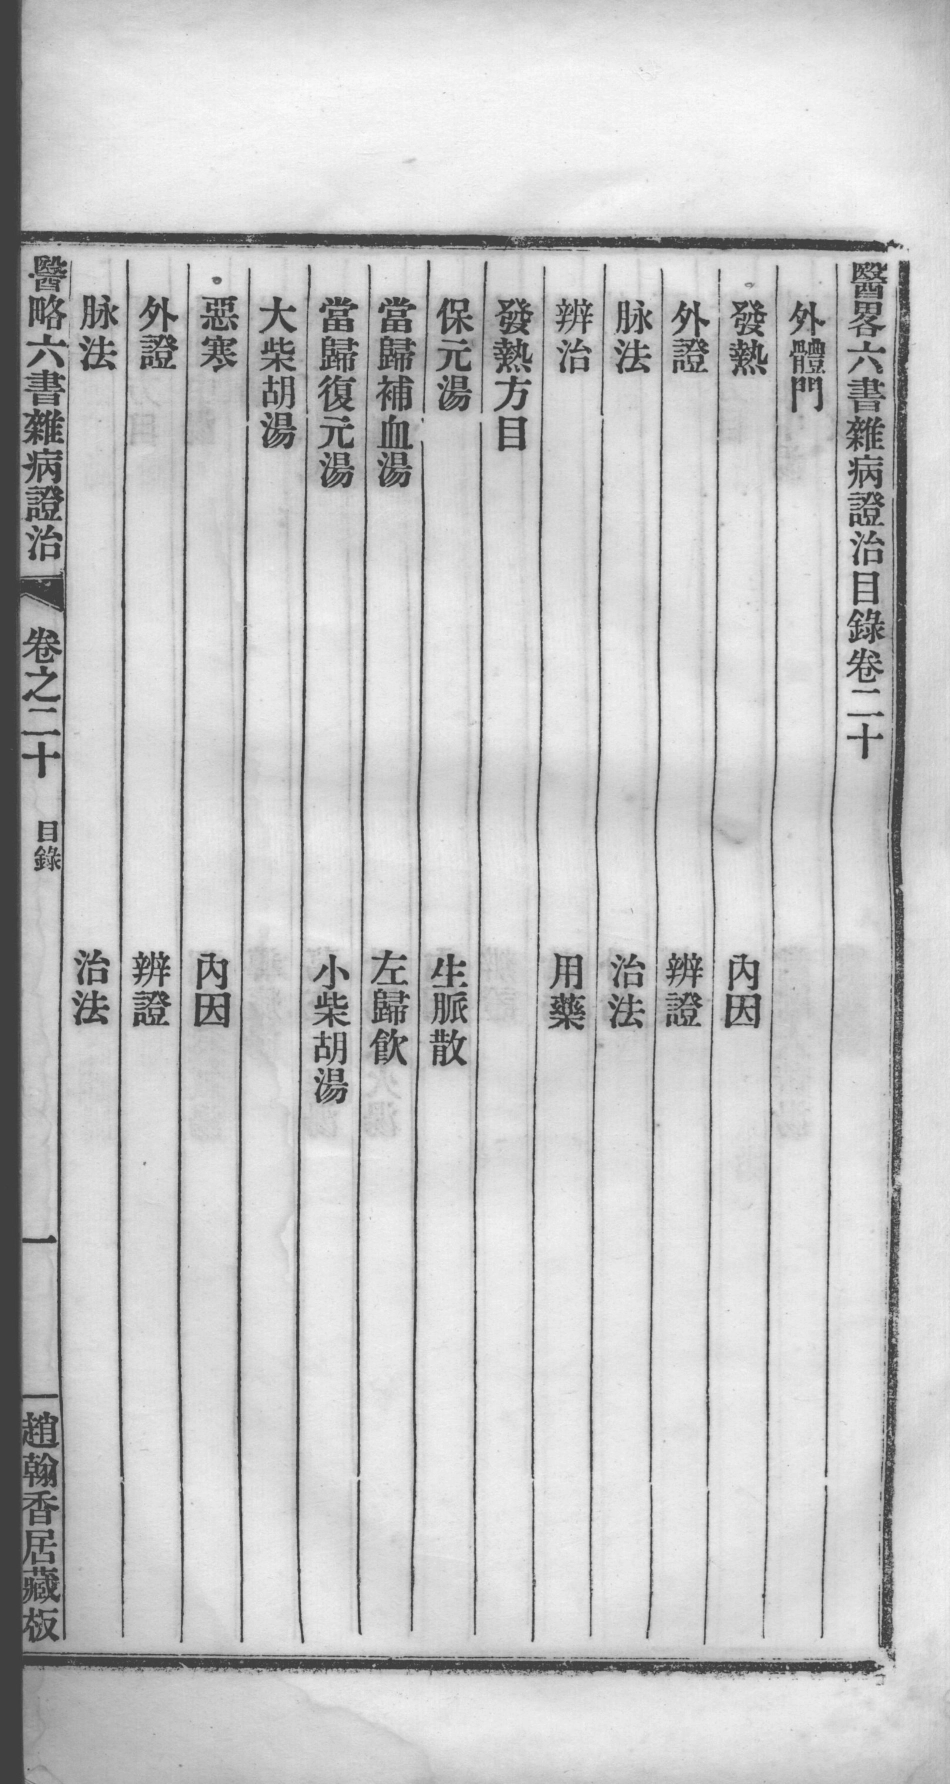 醫畧六書雜病證治目錄卷二十
外體門
發熱　內因
外證　辨證
脉法　治法
辨治　用藥
發熱方目
保元湯　生脈散
當歸補血湯　左歸飲
當歸復元湯　小柴胡湯
大柴胡湯
惡寒　內因
外證　辨證
脉法　治法
醫略六書雜病證治　卷之二十　目錄　一　趙翰香居藏板